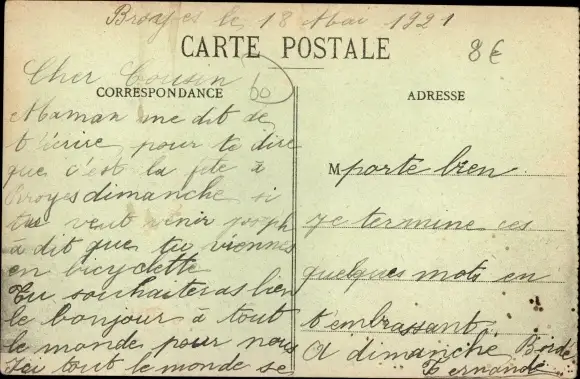 Broyes le 18 Mai 1921
CARTE POSTALE
8€
Cher Cousin
60
CORRESPONDANCE
Maman me dit de
t'écrire pour te dire
que c'est la fête à
Broyes dimanche si
tu veut venir joseph
à dit que tu viennes
en bicyclette
Tu souhaiteras bien
le bonjour à tout
le monde pour nous
Ici tout le monde se
ADRESSE
M porte bien
Je termine ces
quelques mots en
t'embrassant
A dimanche Borde
Fernande